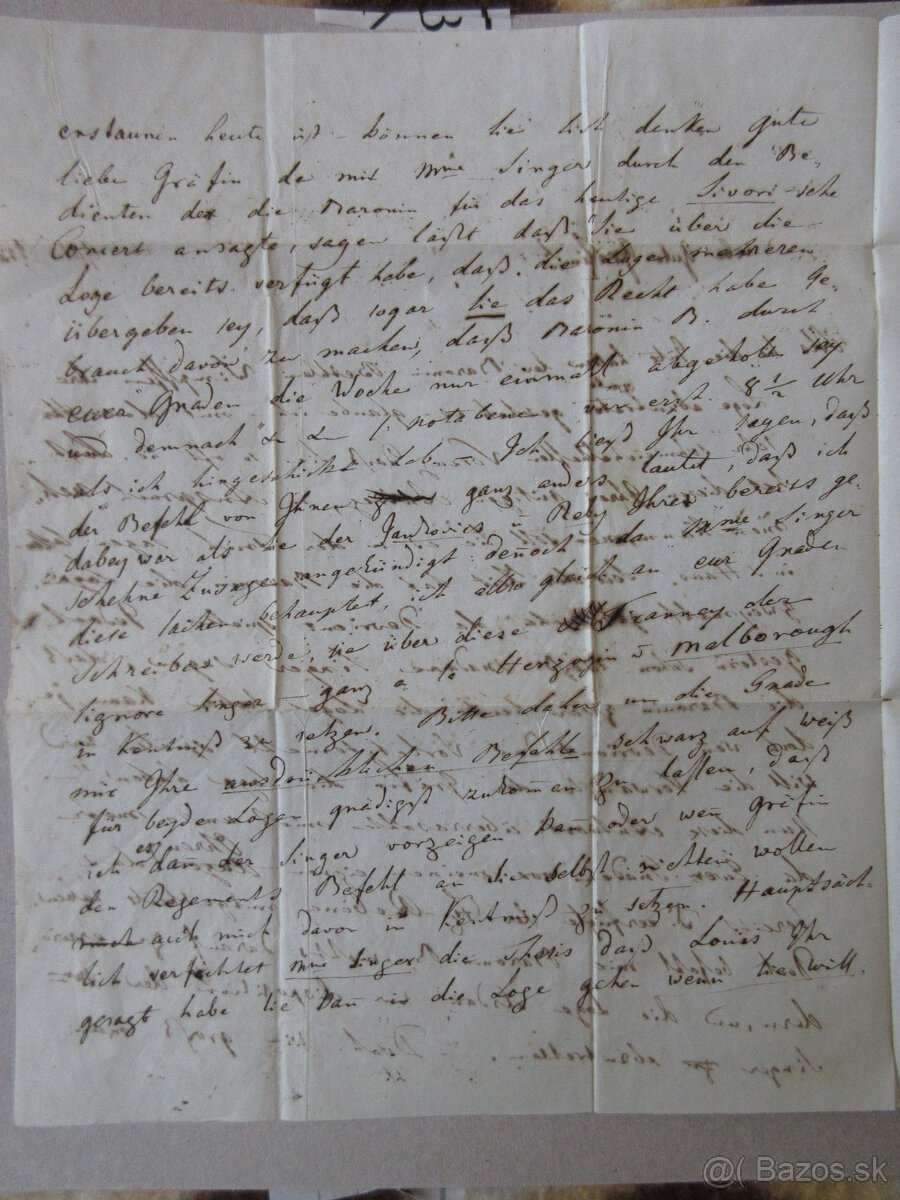 erstaunen heute ist – können Sie sich denken gute
liebe Gräfin da mir Mme Singer durch den Be-
dienten der die Baronin für das heutige Sivori-sche
Concert ansagte, sagen läßt daß Sie über die
Loge bereits verfügt habe, daß die Loge mehreren
übergeben sey, daß sogar sie das Recht habe Ge-
brauch davon zu machen, daß Baronin B. durch
euer Gnaden die Woche nur einmahl abgeholt sey
und demnach &c &c /: notabene war erst 8 1/2 Uhr
als ich hingeschickt hab – Ich ließ Ihr sagen, daß
der Befehl von Ihnen ganz anders lautet, daß ich
dabey war als Sie der Jankovics u Reby Ihres bereits ge-
schehne Zusage angekündigt dennoch da Mme Singer
diese Sachen behauptet, ich also gleich an eur Gnaden
schreiben werde, sie über diese Tiranney der
Signore Singer – ganz a la Herzogin v Malborough
in Kentniß zu setzen. Bitte daher um die Gnade
mir Ihre ausdrücklichen Befehle schwarz auf weiß
für beyden Logen gnädigst zukommen zu lassen, daß
ich es dann der Singer vorzeigen kann oder wenn Gräfin
den Regements Befehl an sie selbst richten wollen
auch mich davon in Kentniß zu setzen. Hauptsäch-
lich verfichtet Mme Singer die Thesis daß Louis Ihr
gesagt habe Sie kan in die Loge gehen wenn Sie will.